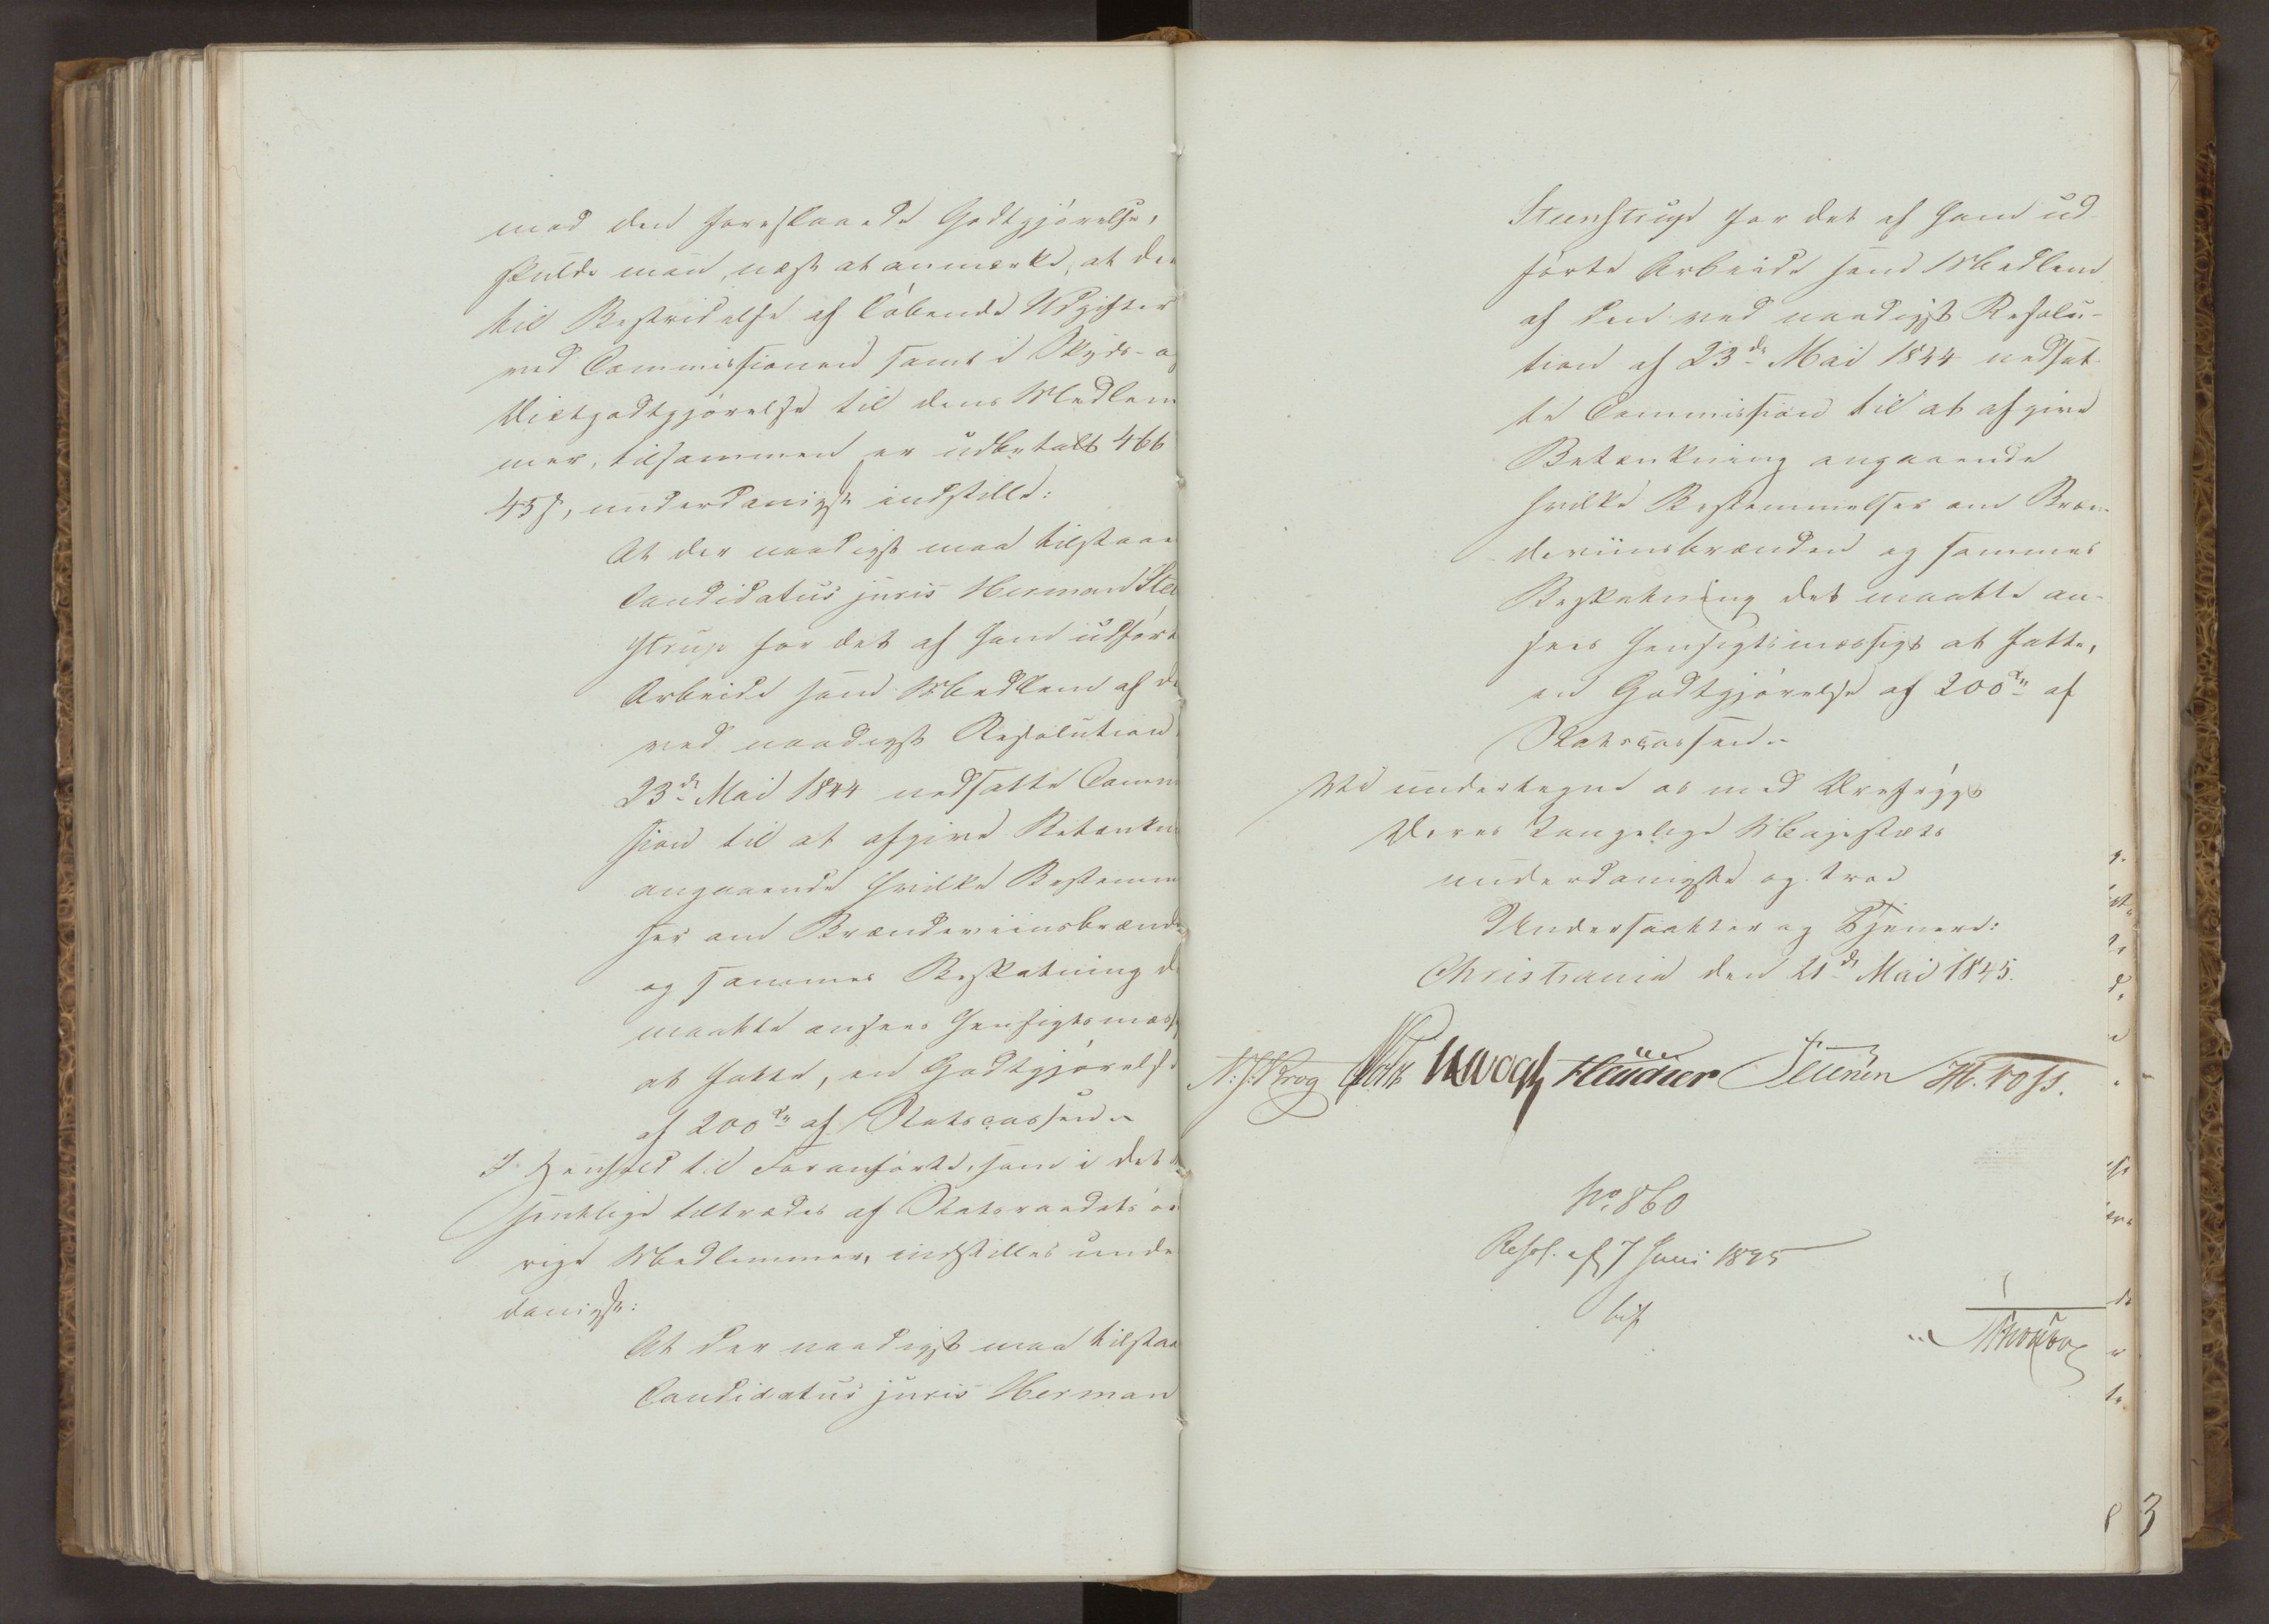 med den foreslaaede Godtgjörelse,
skulde man, næst at anmærke, at der
til Bestridelse af löbende Udgifter
ved Commissionen samt i Skyds- og
Diætgodtgjörelse til dens Medlem
mer, tilsammen er udbetalt 466
45 s, underdanigst indstille:
At der naadigst maa tilstaaes
Candidatus juris Herman Steen
strup for det af ham udförte
Arbeide som Medlem af den
ved naadigst Resolution
23de Mai 1844 nedsatte Commis
sion til at afgive Betænkn
angaaende hvilke Bestemmel
ser om Brændeviinsbrænde
og sammes Beskatning de
maatte ansees hensigtsmæss
at fatte, en Godtgjörelse
af 200 af Statscassen.
I Henhold til Foranförte, som i det
hentlige tiltrædes af Statsraadets öv
rige Medlemmer, indstilles under
danigst:
At der naadigst maa tilstaaes
Candidatus juris Herman
Steenstrup for det af ham ud-
förte Arbeide som Medlem
af den ved naadigst Resolu-
tion af 23de Mai 1844 nedsat-
te Commission til at afgive
Betænkning angaaende
hvilke Bestemmelser om Bræn-
deviinsbrænden og sammes
Beskatning det maatte an-
sees hensigtsmæssigt at fatte,
en Godtgjörelse af 200 af
Statscassen.
Vi undertegne os med Ærefrygt
Deres Kongelige Majestæts
underdanigste og troe
Undersaatter og Tjenere:
Christiania den 21de Mai 1845.
N. J. Krog Holst JH Vogt Fleischer Petersen H. Foss.
No. 860
Resol. af 7 Juni 1845